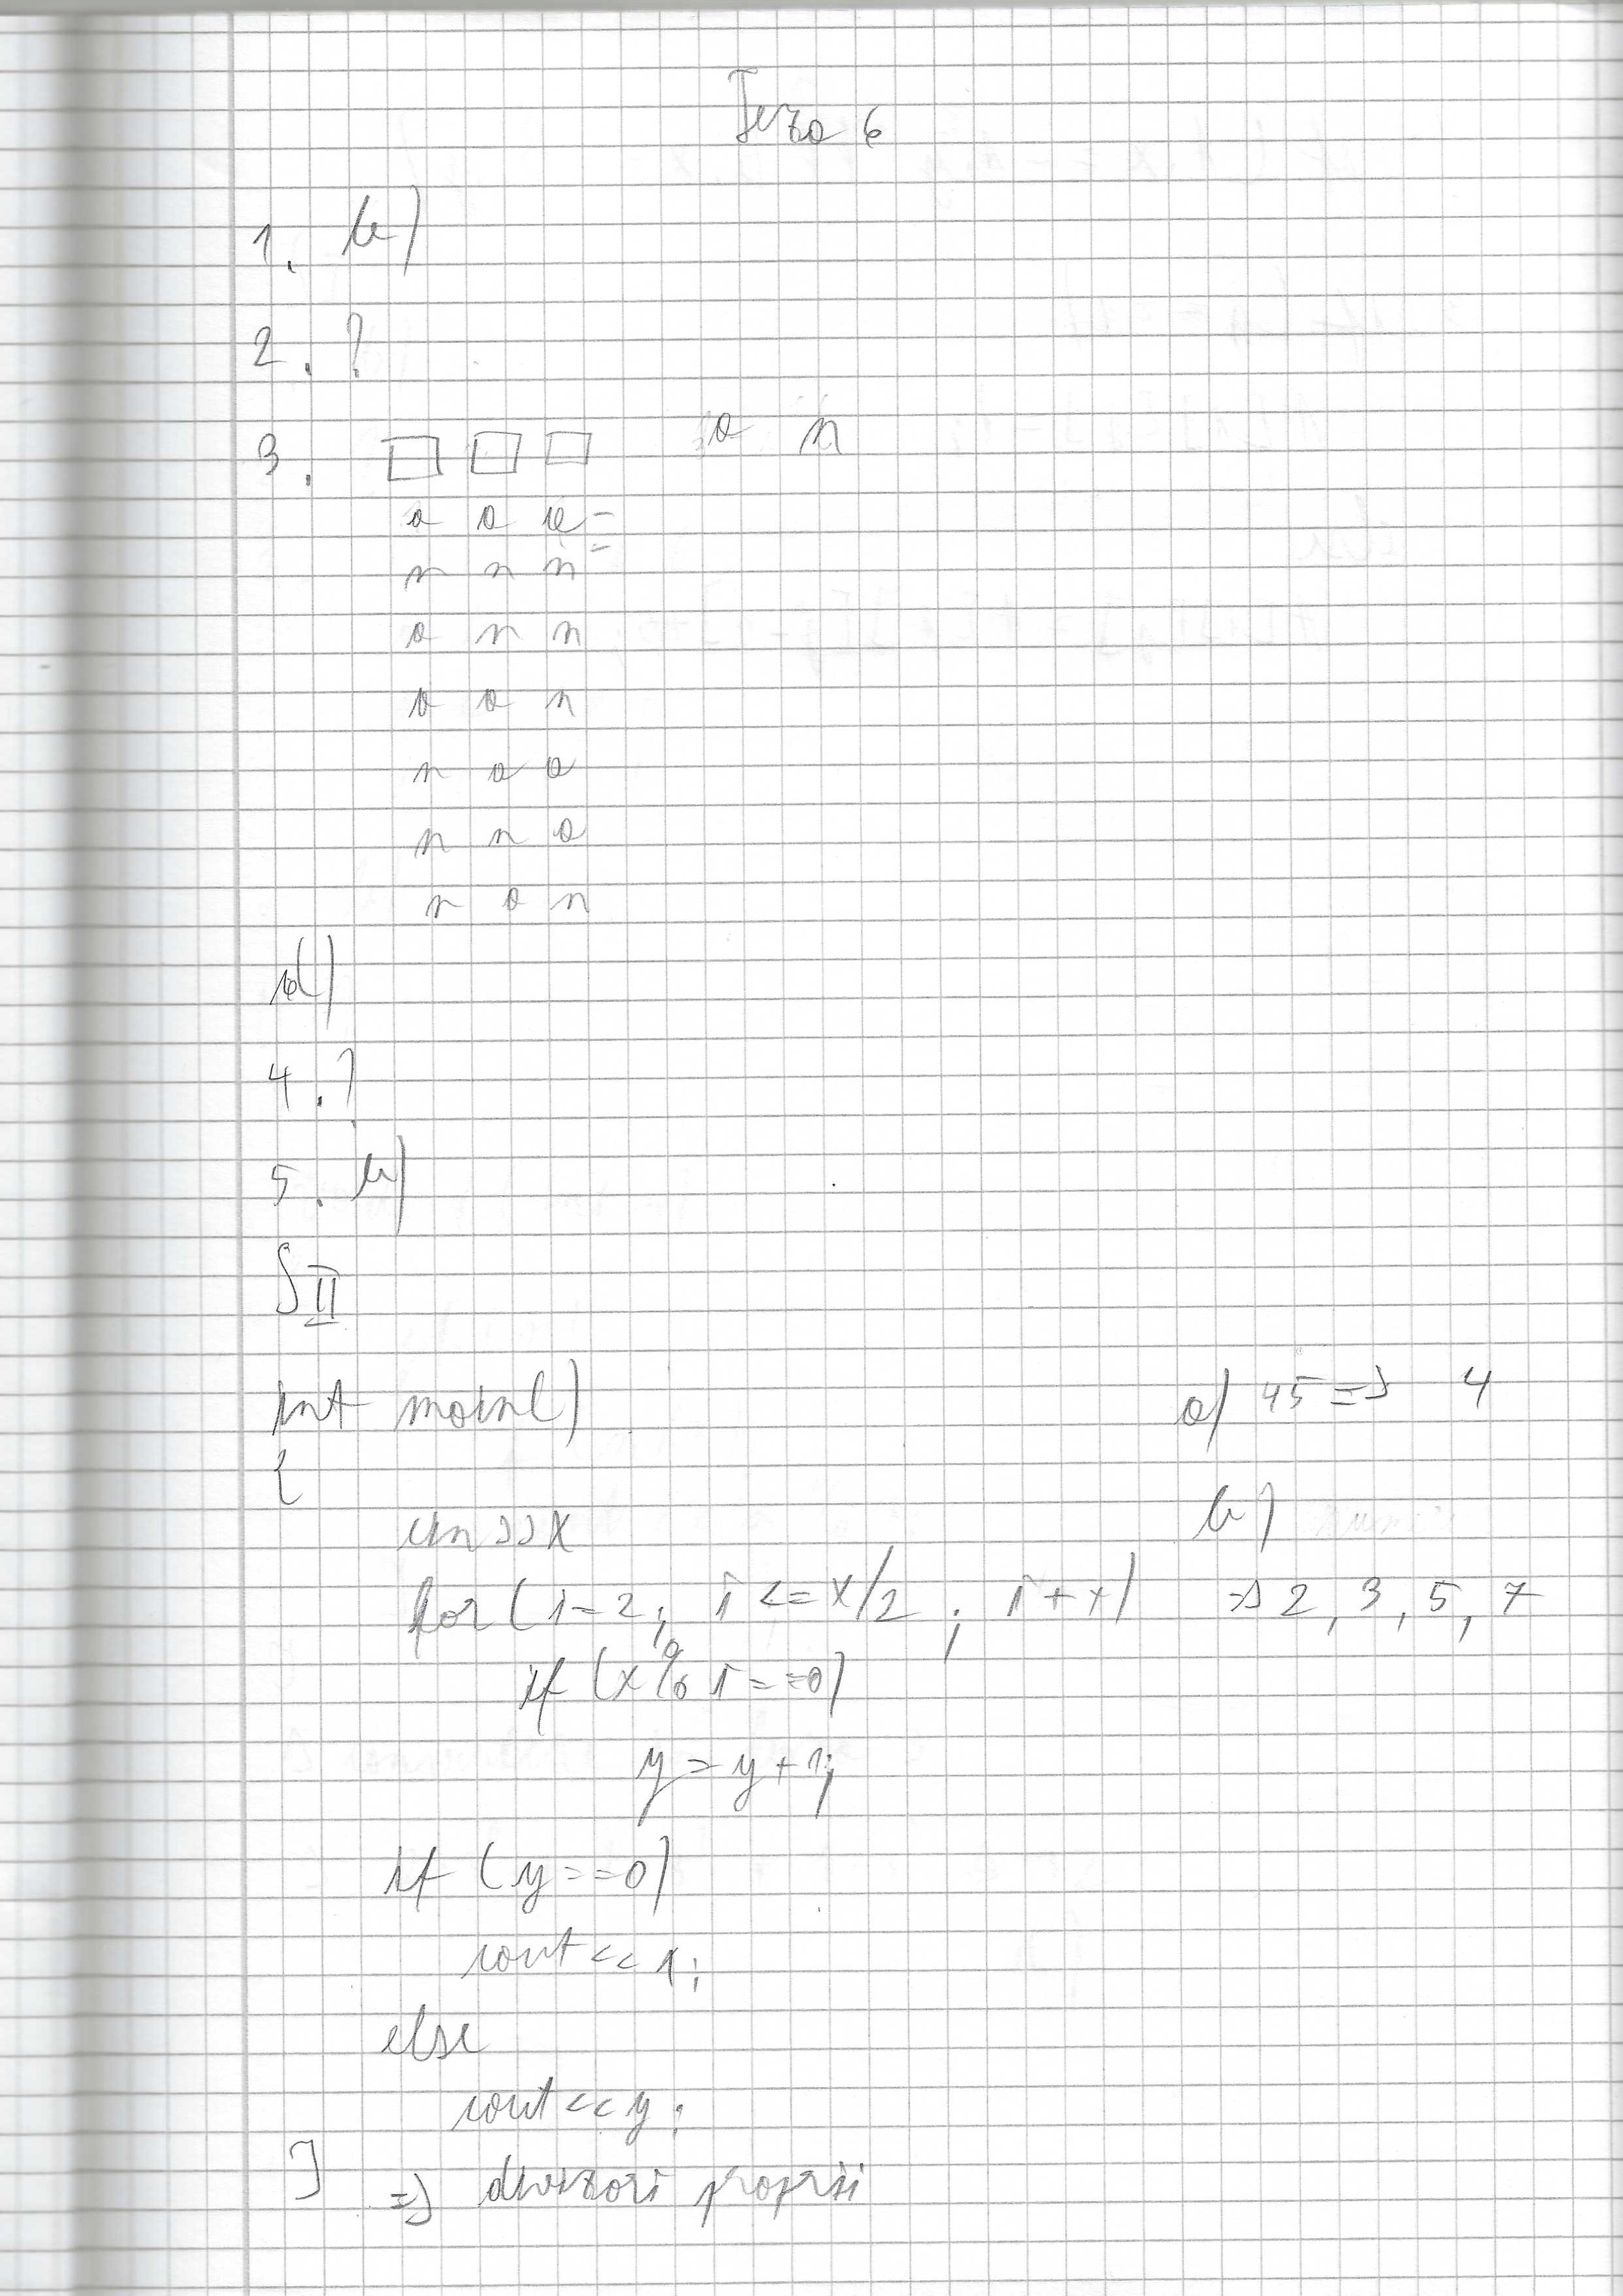 Teza 6
1. b)
2. ?
3. □ □ □ a n
a a a
n n n
a n n
a a n
n a a
n n a
n a n
d)
4. ?
5. b)
S II
int main()
{
cin>>x
for(i=2; i<=x/2; i++)
if (x%i==0)
y=y+1;
if (y==0)
cout<<1;
else
cout<<y;
}
=> divizori proprii
a) 45 => 4
b)
=> 2, 3, 5, 7